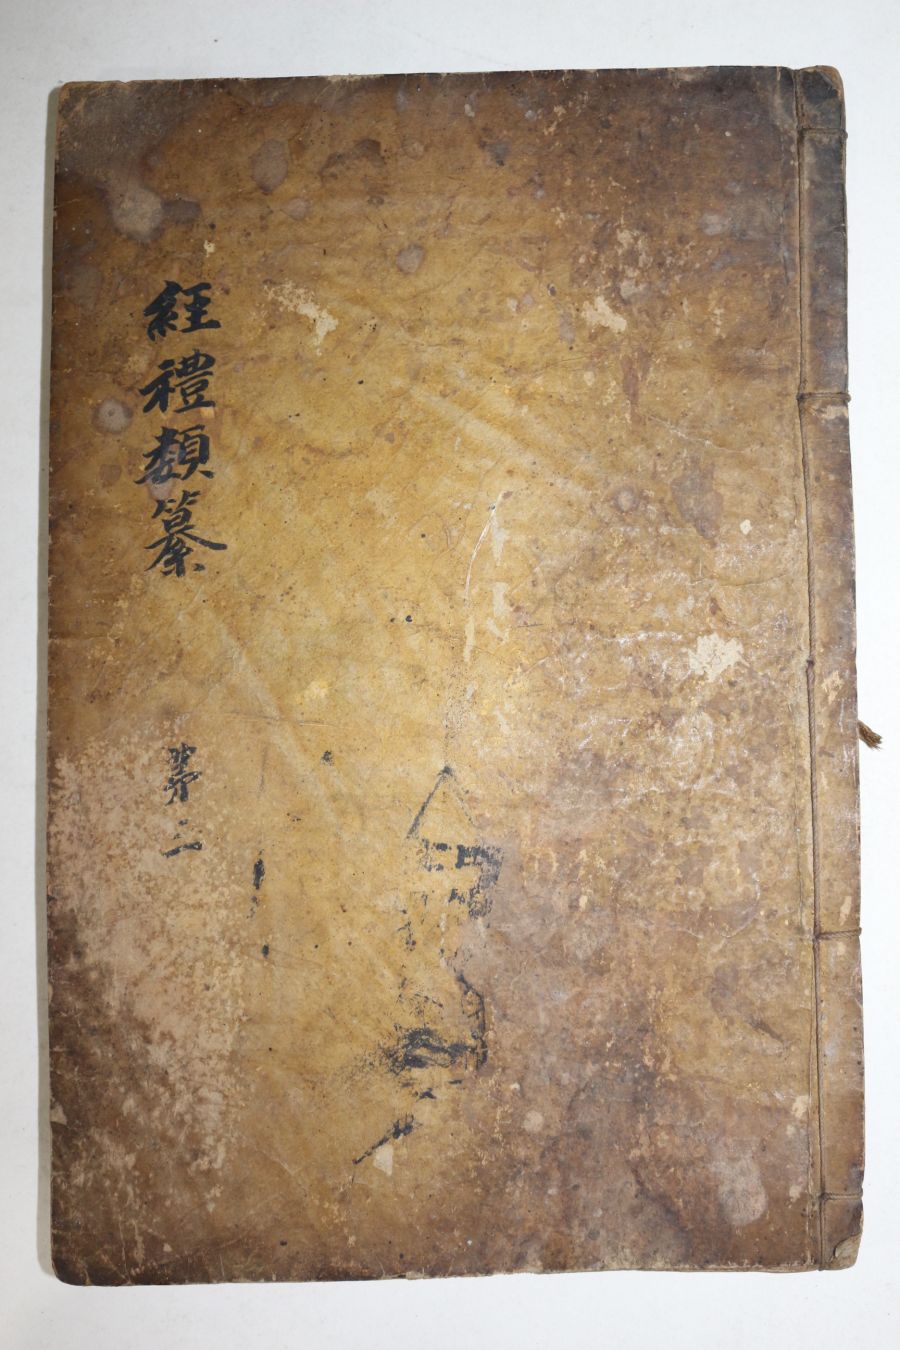 經禮類纂
第二